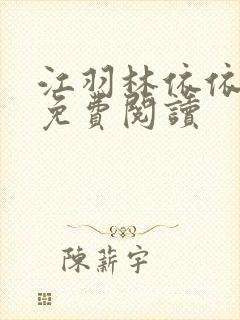 江羽林依依
免費閱讀
陳薪宇